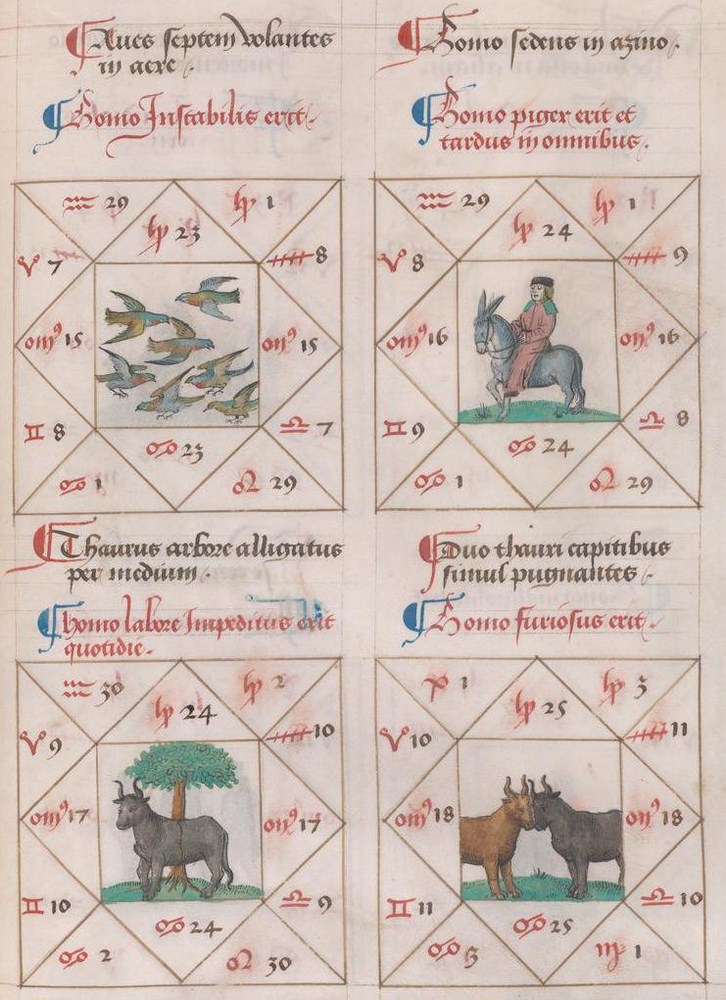 Aves septem volantes
in aere.
Homo Instabilis erit.
♒ 29
♑ 23
♑ 1
♈ 7
8
15
15
♊ 8
♎ 7
♋ 23
♋ 1
♌ 29
Homo sedens in azino.
Homo piger erit et
tardus in omnibus.
♒ 29
♑ 24
♑ 1
♈ 8
9
16
16
♊ 9
♎ 8
♋ 24
♋ 1
♌ 29
Thaurus arbore alligatus
per medium.
homo labore Impeditus erit
quotidie.
♒ 30
♑ 24
♑ 2
♈ 9
10
17
17
♊ 10
♎ 9
♋ 24
♋ 2
♌ 30
Duo thauri capitibus
simul pugnantes.
Homo furiosus erit.
♓ 1
♑ 25
♑ 3
♈ 10
11
18
18
♊ 11
♎ 10
♋ 25
♋ 3
♍ 1